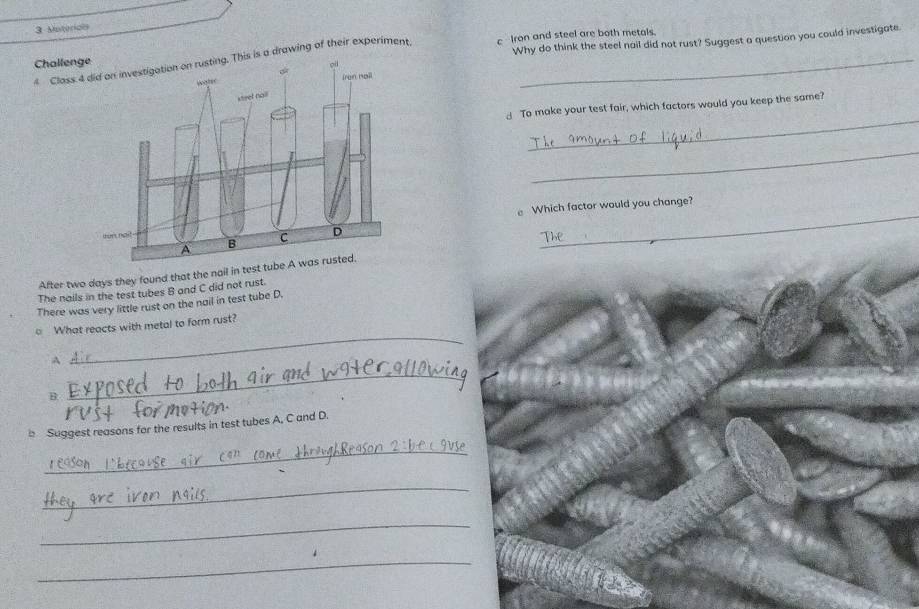 3 Materials
Challenge
4 Class 4 did an investigation on rusting. This is a drawing of their experiment.
water
steel nail
air
oil
iron nail
iron nail
A
B
C
D
After two days they found that the nail in test tube A was rusted.
The nails in the test tubes B and C did not rust.
There was very little rust on the nail in test tube D.
a What reacts with metal to form rust?
A Air
B Exposed to both air and water, allowing
rust formation.
b Suggest reasons for the results in test tubes A, C and D.
reason 1: because air can come through Reason 2: because
they are iron nails.
c Iron and steel are both metals.
Why do think the steel nail did not rust? Suggest a question you could investigate.
d To make your test fair, which factors would you keep the same?
The amount of liquid
e Which factor would you change?
The